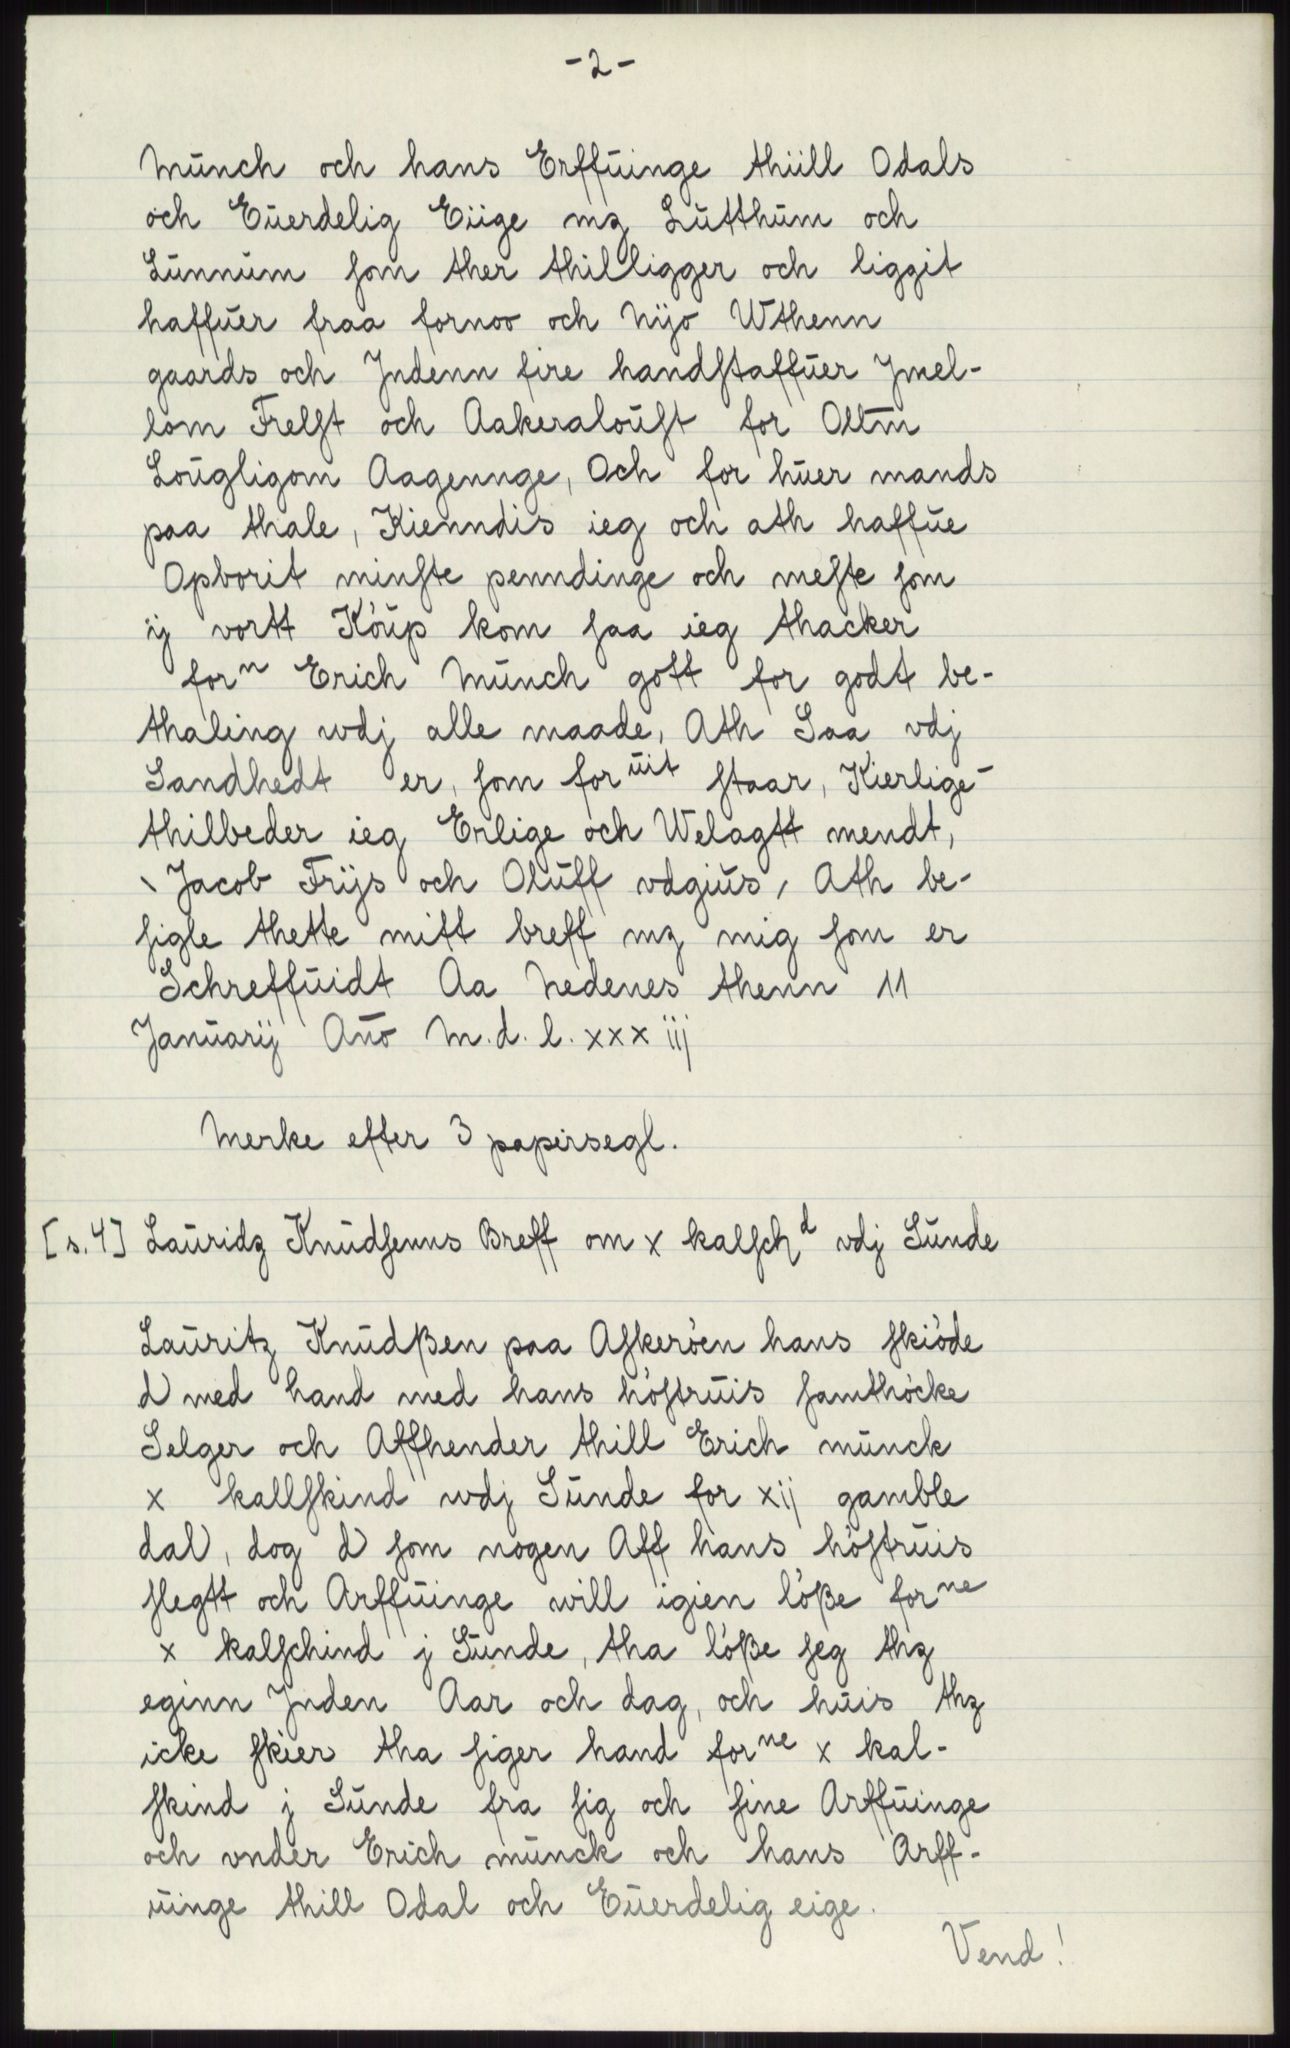 -2-
Münch och hans Erffüinge thiill Odals
och Eüerdelig Eiige mz Lutthüm och
Lünnüm som ther thilligger och liggit
haffüer fraa fornoo och Nijo Wthenn
gaards och Jndenn fire handstaffüer Jmel-
lom Frelst och Aakeraloüst for Oltm
Loügligom Aagennge, Och for hüer mands
paa thale, Kienndis ieg och ath haffüe
Opborit minste penndinge och meste som
ij vortt Köüp kom saa ieg thacker
forn Erich Münch gott for godt be-
thaling wdj alle maade, Ath Saa vdj
Sandhedt er, som forüit staar, Kierlige-
thilbeder ieg Erlige och Welagtt mendt,
Jacob Frijs och Olüff vdgiüs, Ath be-
sigle thette mitt breff mz mig som er
Schreffüidt Aa Nedenes thenn 11
Januarij Año M.d.l.xxx iij
Merke efter 3 papirsegl.
[s.4] Lauridz Knüdsenns Breff om x kalschd vdj Sünde
Lauritz Knüdßen paa Askeröen hans skiöde
d med hand med hans höstrüis samthöcke
Selger och Affhender thill Erich münck
x kallskind wdj Sünde for xij gamble
dal, dog d som nogen Aff hans höstrüis
slegtt och Arffüinge will igien löße forne
x kalschind j Sünde, tha löße seg thz
eginn Jnden Aar och dag, och hüis thz
icke skier tha siger hand forne x kal-
skind j Sünde fra sig och sine Arffüinge
och vnder Erich münck och hans Arff-
üinge thill Odal och Eüerdelig eige.
Vend!